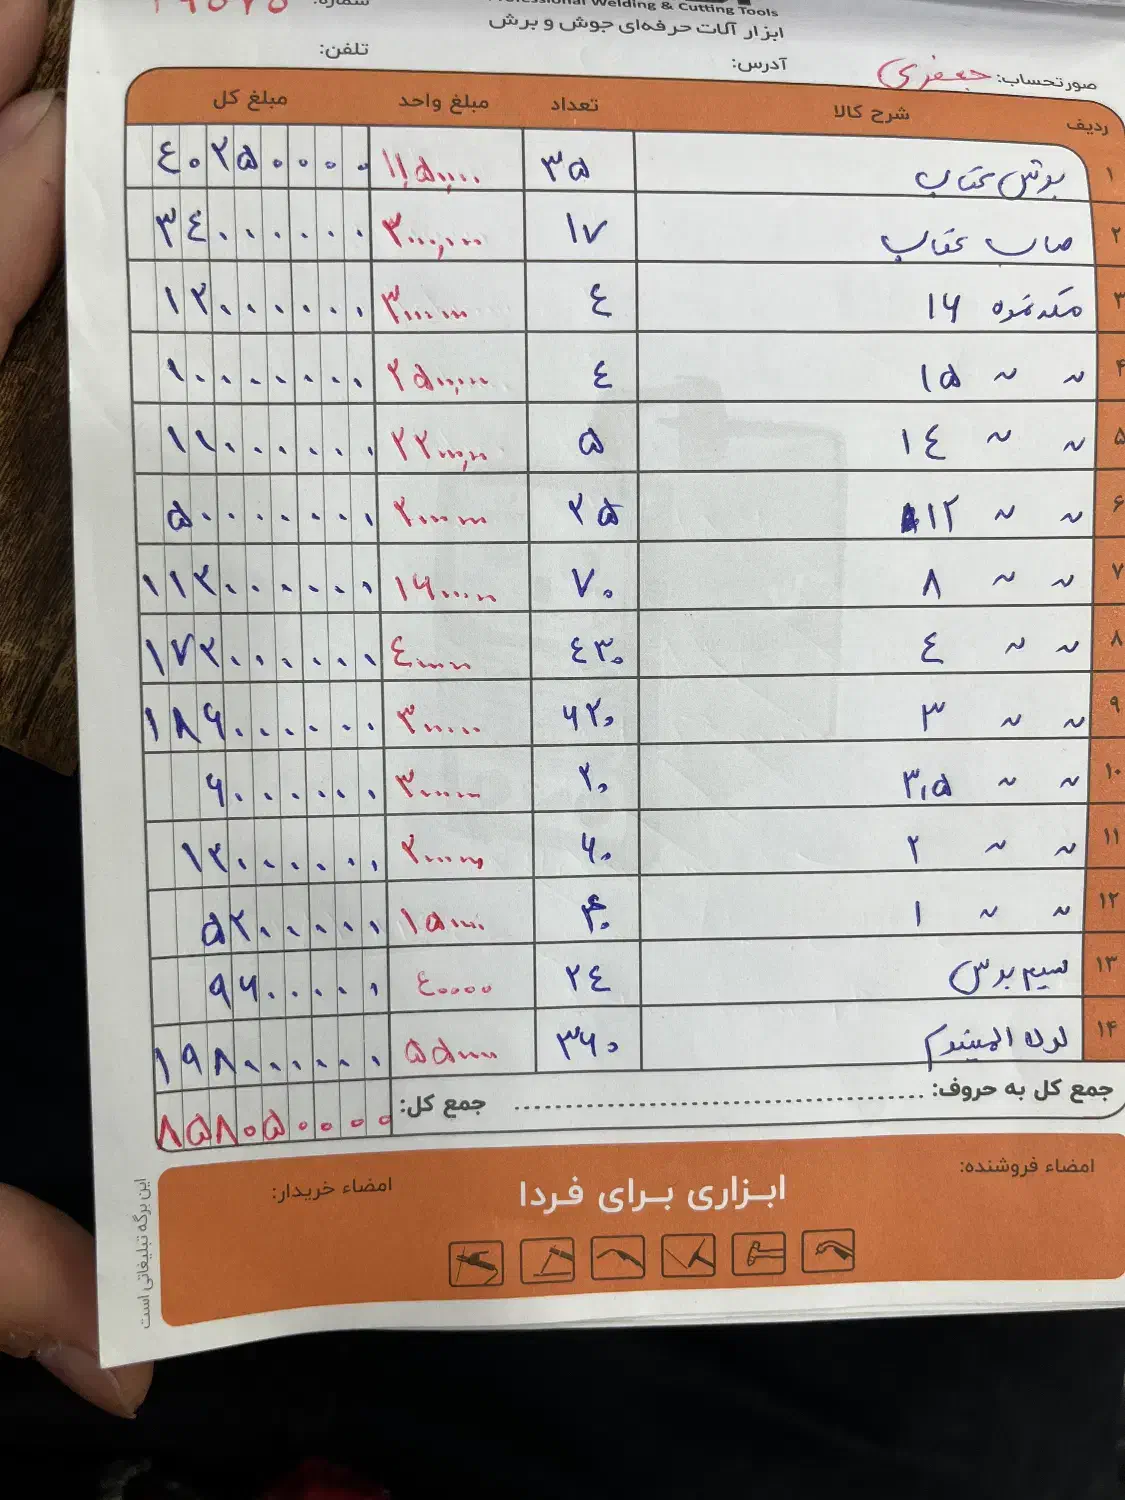 Professional Welding & Cutting Tools
ابزار آلات حرفه‌ای جوش و برش
صورتحساب: جعفری آدرس: تلفن: شماره:
ردیف شرح کالا تعداد مبلغ واحد مبلغ کل
۱ بوش عقاب ۳۵ ۱,۱۵۰,۰۰۰ ۴۰۲۵۰۰۰۰
۲ عقاب ۱۷ ۲,۰۰۰,۰۰۰ ۳۴۰۰۰۰۰۰
۳ ۱۶ ۴ ۳۰۰۰۰۰۰ ۱۲۰۰۰۰۰۰
۴ ~ ~ ۱۵ ۴ ۲۵۰۰,۰۰۰ ۱۰۰۰۰۰۰۰
۵ ~ ~ ۱۴ ۵ ۲۲۰۰,۰۰۰ ۱۱۰۰۰۰۰۰
۶ ~ ~ ۱۲ ۲۵ ۲۰۰۰۰۰ ۵۰۰۰۰۰۰
۷ ~ ~ ۸ ۷۰ ۱۶۰۰۰۰۰ ۱۱۲۰۰۰۰۰۰
۸ ~ ~ ۴ ۴۳۰ ۴۰۰۰۰۰ ۱۷۲۰۰۰۰۰۰
۹ ~ ~ ۳ ۶۲۰ ۳۰۰۰۰۰ ۱۸۶۰۰۰۰۰۰
۱۰ ~ ~ ۳,۵ ۲۰ ۳۰۰۰۰۰ ۶۰۰۰۰۰۰
۱۱ ~ ~ ۲ ۶۰ ۲۰۰۰۰۰ ۱۲۰۰۰۰۰۰
۱۲ ~ ~ ۱ ۱۵۰۰۰۰ ۵۲۰۰۰۰۰
۱۳ سیم بوش ۲۴ ۴۰۰۰۰ ۹۶۰۰۰۰
۱۴ لوله المینیوم ۳۶۰ ۵۵۰۰۰۰ ۱۹۸۰۰۰۰۰۰
جمع کل به حروف: جمع کل: ۸۵۸۰۵۰۰۰۰
امضاء فروشنده: امضاء خریدار:
ابزاری برای فردا
این برگه تبلیغاتی است